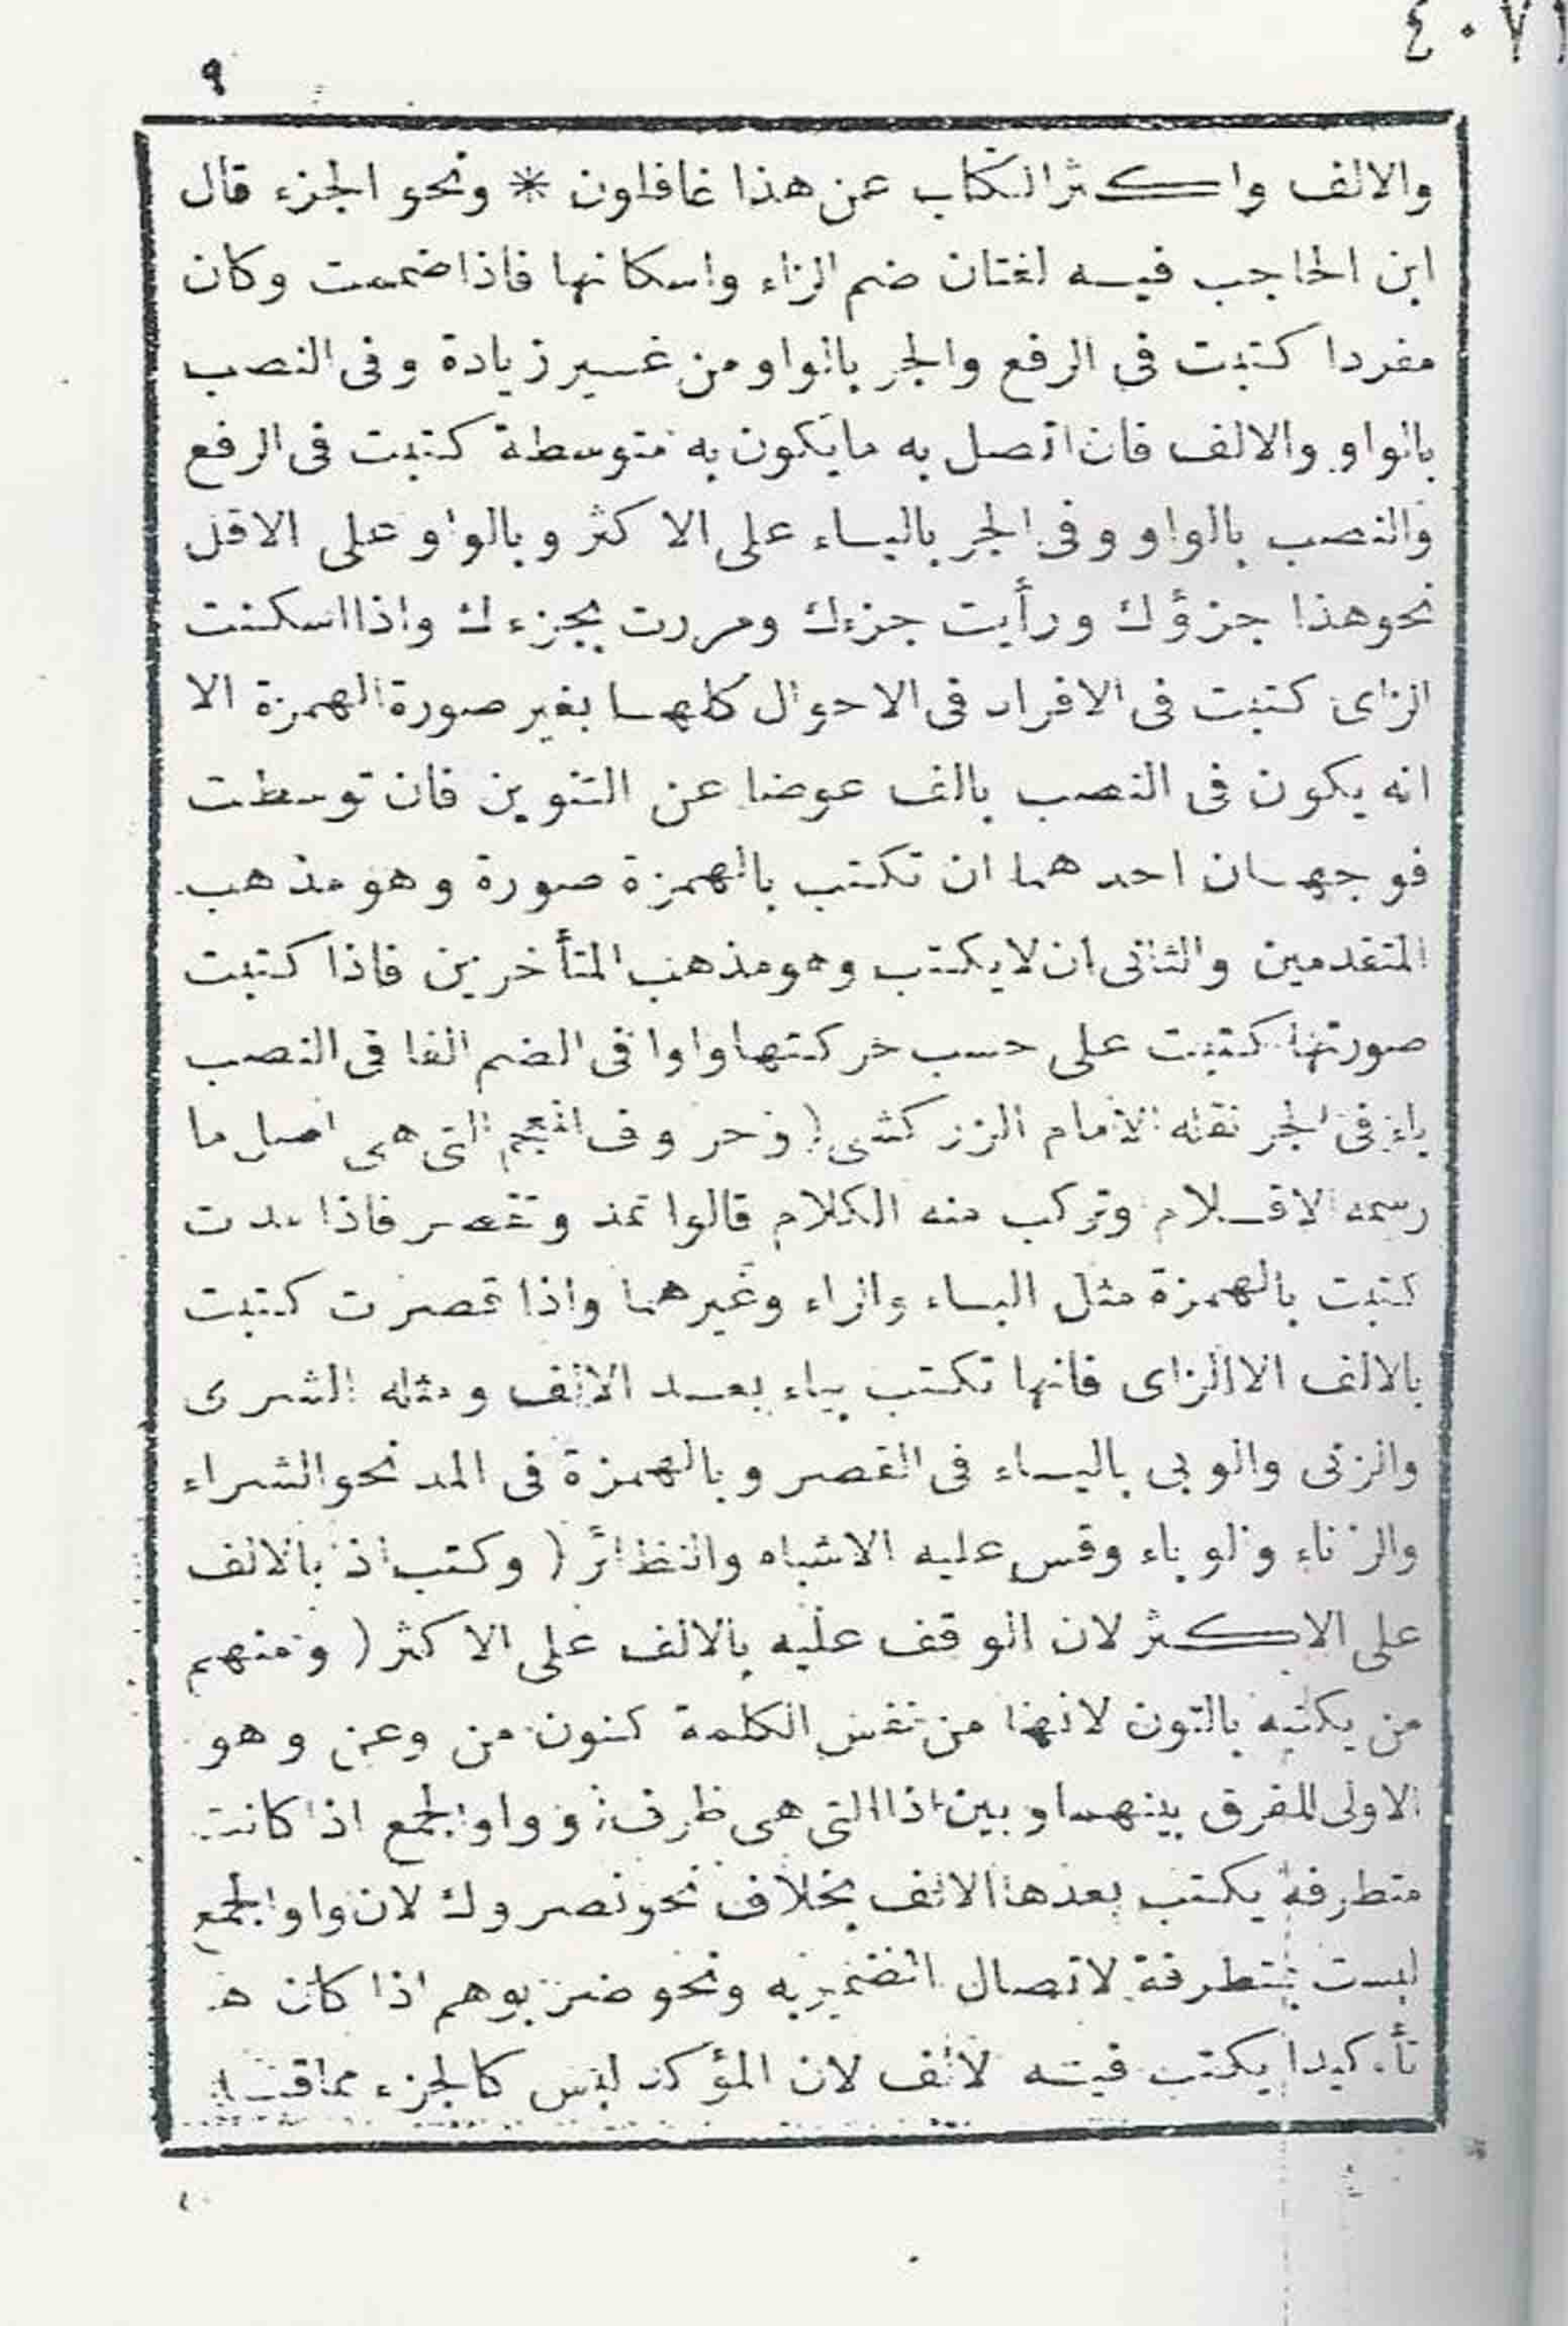 ٤٠٧١
٩
والالف واكثر الكتاب عن هذا غافلون * ونحو الجزء قال
ابن الحاجب فيه لغتان ضم الزاء واسكانها فاذا ضممت وكان
مفردا كتبت في الرفع والجر بالواو من غير زيادة وفى النصب
بالواو والالف فان اتصل به ما يكون به متوسطة كتبت فى الرفع
والنصب بالواو وفى الجر بالياء على الاكثر وبالواو على الاقل
نحو هذا جزؤك ورأيت جزءك ومررت بجزءك واذا اسكنت
الزاى كتبت فى الافراد فى الاحوال كلها بغير صورة الهمزة الا
انه يكون فى النصب بالف عوضا عن التنوين فان توسطت
فوجهان احدهما ان تكتب بالهمزة صورة وهو مذهب
المتقدمين والثانى ان لا يكتب وهو مذهب المتأخرين فاذا كتبت
صورتها كتبت على حسب حركتها واوا فى الضم الفا فى النصب
ياء فى الجر نقله الامام الزركشى ( وحروف المعجم التى هى اصل ما
رسمه الاقلام وتركب منه الكلام قالوا تمد وتقصر فاذا مدت
كتبت بالهمزة مثل الباء والراء وغيرهما واذا قصرت كتبت
بالالف الا الزاى فانها تكتب بياء بعد الالف ومثله الشرى
والزنى والوبى بالياء فى القصر وبالهمزة فى المد نحو الشراء
والزناء والوباء وقس عليه الاشباه والنظائر ( وكتب اذ بالالف
على الاكثر لان الوقف عليه بالالف على الاكثر ( ومنهم
من يكتبه بالنون لانها من نفس الكلمة كنون من وعن وهو
الاولى للفرق بينها وبين اذا التى هى ظرف وواو الجمع اذا كانت
متطرفة يكتب بعدها الالف بخلاف نحو نصروك لان واو الجمع
ليست بمتطرفة لاتصال الضمير به ونحو ضربوهم اذا كان
تأكيدا يكتب فيه الالف لان المؤكد ليس كالجزء مما